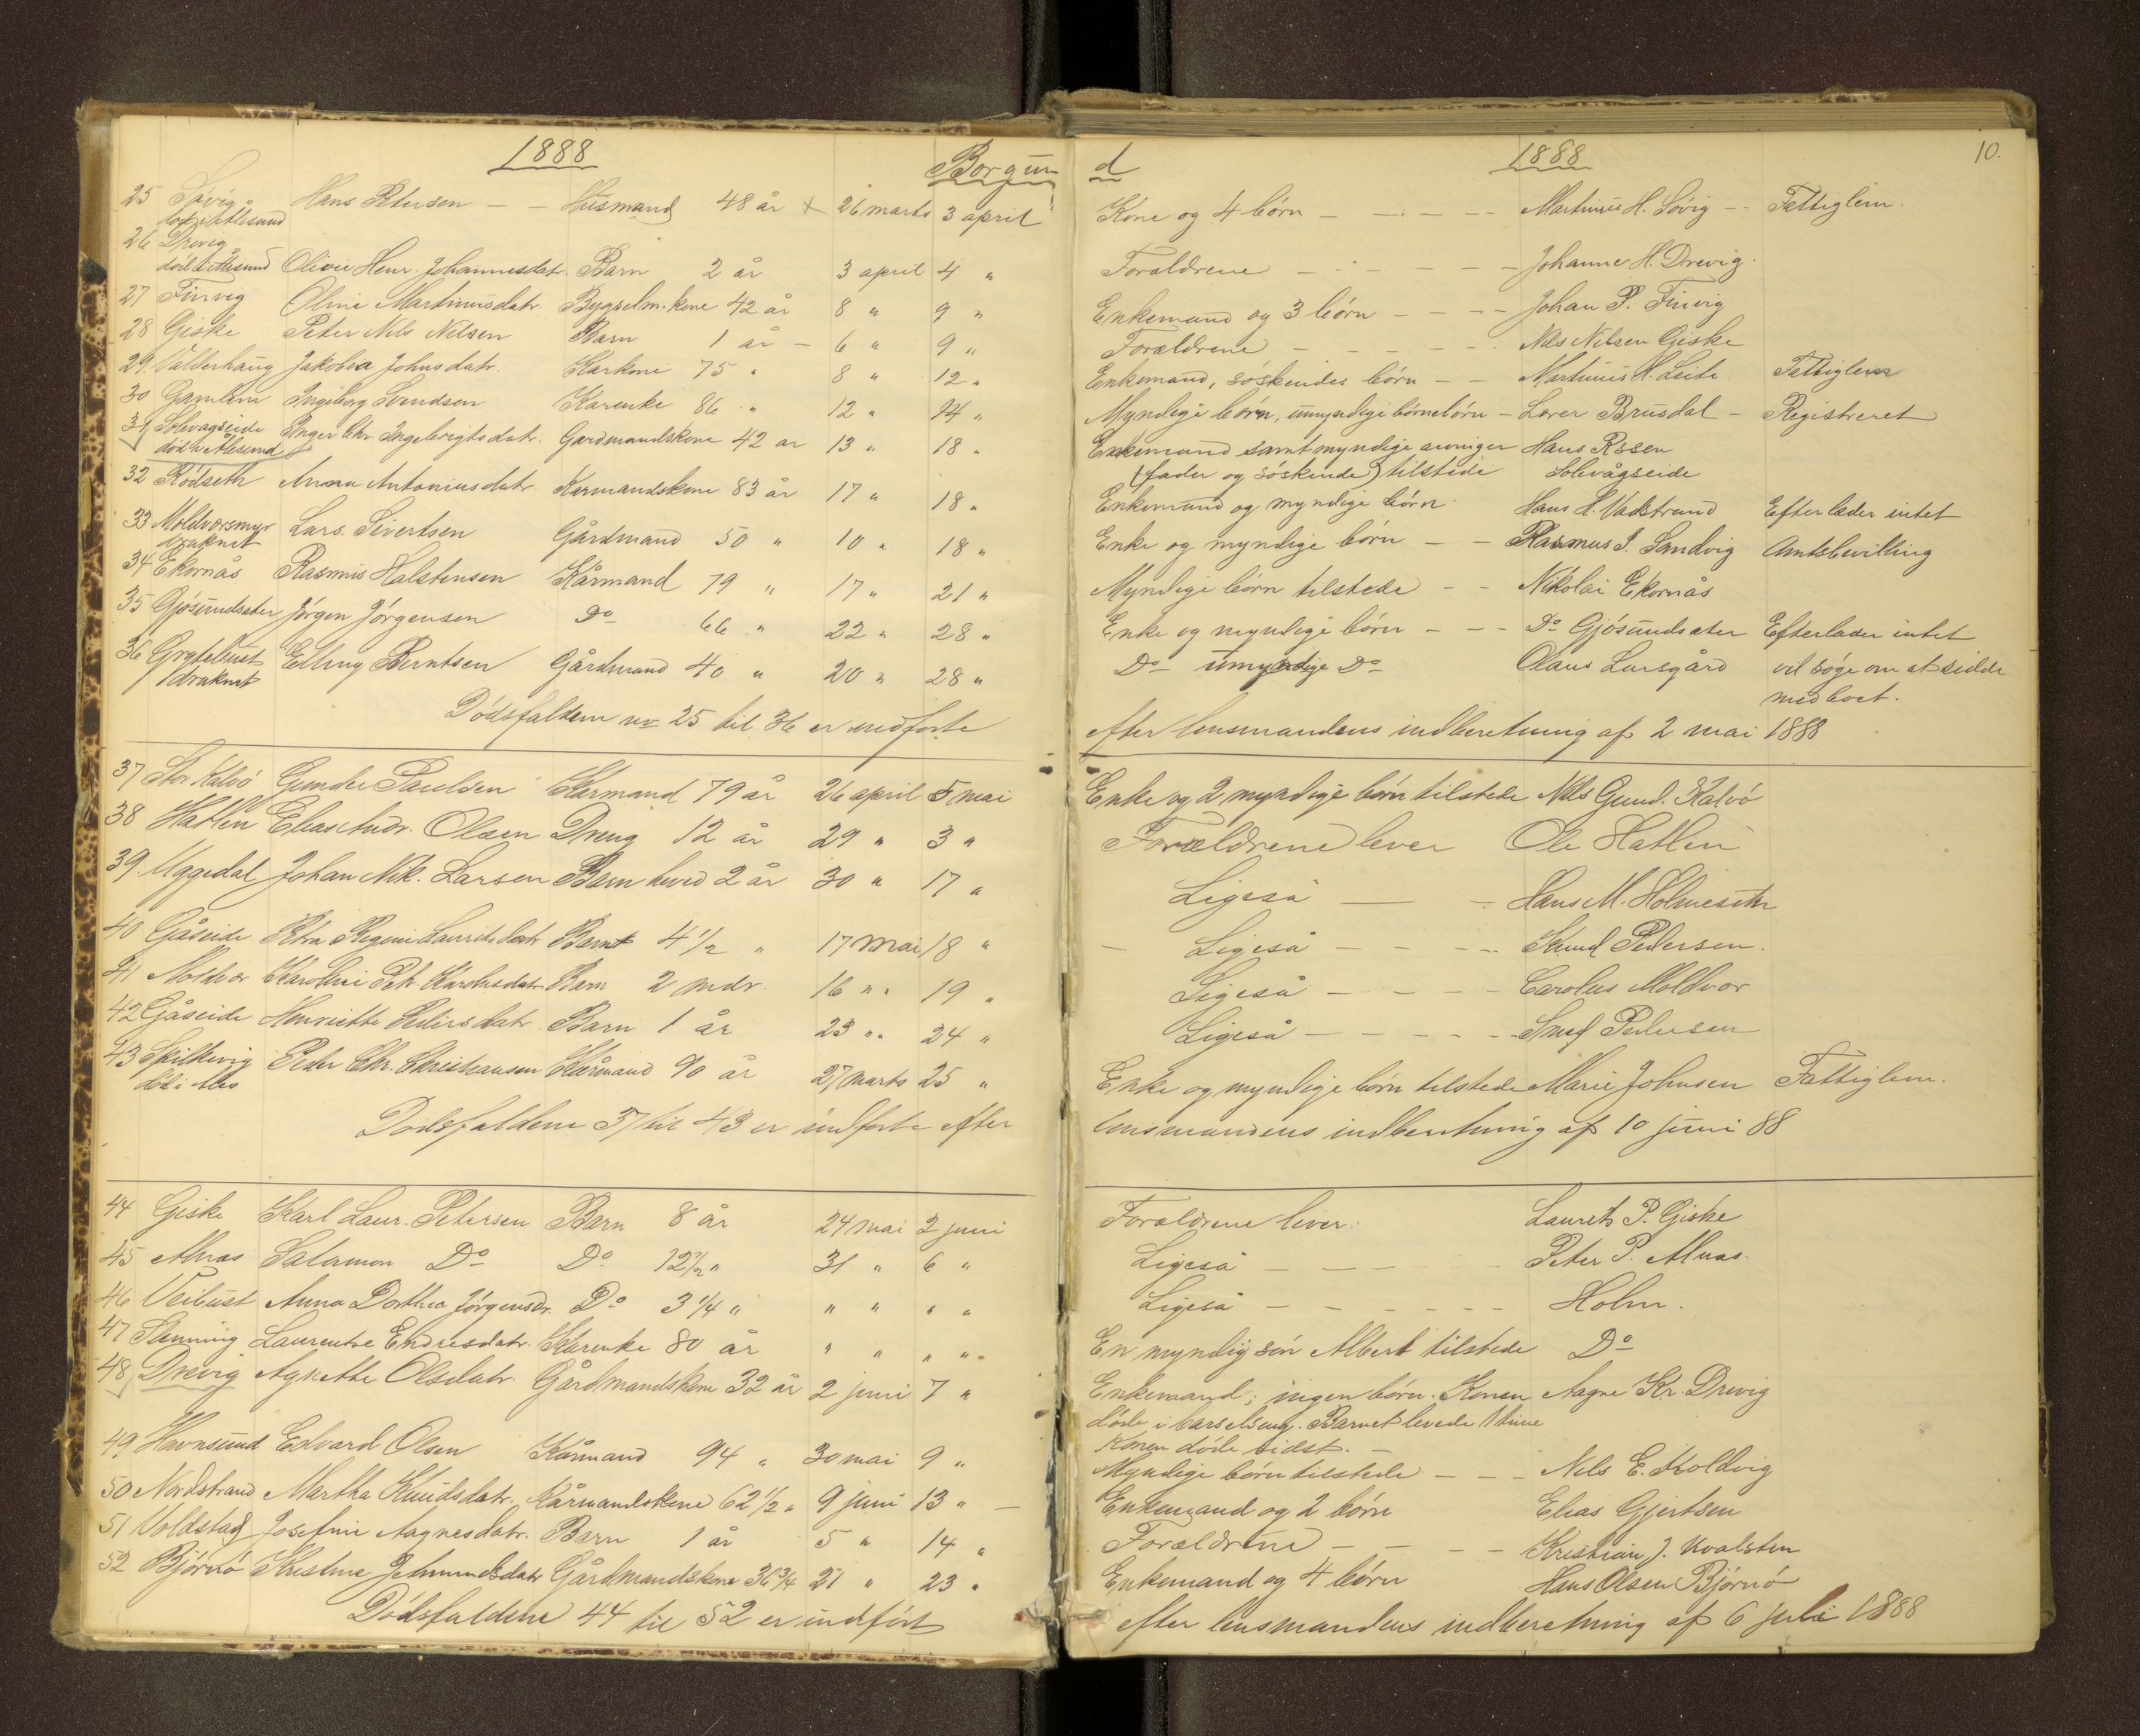 1888
Borgun
25 Søvig Hans Petersen – – Husmand 48 år × 26 marts 3 april
død i Ålesund
26 Drevig
død i Ålesund Olivie Henr. Johannesdatr. Barn 2 år 3 april 4 "
27 Finvig Oline Martinusdatr. Bygselm.kone 42 år 8 " 9 "
28 Giske Peter Nils Nilsen Barn 1 år – 6 " 9 "
29 Valderhaug Jakobia Johnsdatr. Karkone 75 " 8 " 12 "
30 Gamlem Ingeborg Svendsen Karenke 86 " 12 " 14 "
31 Solevagseide Inger Chr. Ingebrigtsdatr. Gardmandskone 42 ar 13 " 18 "
død i Ålesund
32 Rödseth Anna Antoniusdatr. Karmandskone 83 år 17 " 18 "
33 Moldversmyr Lars Sivertsen Gårdmand 50 " 10 " 18 "
druknet
34 Ekornås Rasmus Halstensen Kårmand 79 " 17 " 21 "
35 Gjösundsæter Jörgen Jörgensen Do 66 " 22 " 28 "
36 Grytebust Elling Berntsen Gårdmand 40 " 20 " 28 "
druknet
Dödsfaldene no 25 til 36 er indførte
37 Stor Kalvö Gunder Paulsen Karmand 79 år 26 april 5 mai
38 Hatlen Elias Andr. Olsen Dreng 12 år 29 " 3 "
39. Uggedal Johan Nik. Larsen Barn hved 2 år 30 " 17 "
40 Gåseide Petra Regine Lauritsdatr Barn 4 1/2 " 17 mai 18 "
41 Moldvær Karoline Petr. Karolusdatr. Barn 2 mdr. 16 " " 19 "
42 Gåseide Henriette Pedersdatr. Barn 1 år 23 " " 24 "
43 Spilkevig Peder Chr. Christiansen Kårmand 90 år 27 marts 25 "
död i Åles
Dødsfaldene 37 til 43 er indførte efter
44 Giske Karl Laur. Petersen Barn 8 år 24 mai 2 juni
45 Alnæs Salamon Do Do 12 1/2 " 31 " 6 "
46 Veibust Anna Dorthea Jörgensdr. Do 3 1/4 " " " " "
47 Slenning Laurentse Endresdatr. Karenke 80 år " " " "
48 Drevig Agnethe Olsdatr. Gårdmandskone 32 år 2 juni 7 "
49 Havnsund Edvard Olsen Kårmand 94 " 30 mai 9 "
50 Nordstrand Martha Knudsdatr. Kårmandskone 62 1/2 " 9 juni 13 " –
51 Voldstad Josefine Aagnesdatr. Barn 1 år 5 " 14 "
52 Björnö Kristine Jetmundsdatr Gårdmandskone 36 3/4 21 " 23 "
Dödsfaldene 44 til 52 er indfört
d
1888
10.
Kone og 4 börn – – – – Martinus H. Sövig – Fattiglem.
Forældrene – – – – – Johanne H. Drevig.
Enkemand og 3 börn – – – – Johan P. Finvig
Forældrene – – – – – Nils Nilsen Giske
Enkemand, söskendes börn – – Martinus H. Leite Fattiglem
Myndige börn, umyndige börnebörn – Lærer Brusdal – Registreret
Enkemand samt myndige arvinger Hans Rasen
(fader og söskende) tilstede Solevågseide
Enkemand og myndige börn Hans H. Vadstrand Efterlader intet
Enke og myndige börn – – Rasmus J. Sandvig Amtsbevilling
Myndige börn tilstede – – Nikolai Ekornås
Enke og myndige börn – – – Do Gjösundsæter Efterlader intet
Do umyndige Do Olaus Larsgård vil söge om at sidde
med boet.
efter lensmandens indberetning af 2 mai 1888
Enke og 2 myndige börn tilstede Nils Gund. Kalvö
Forældrene lever Ole Hatlen
Ligeså – – Hans M. Holmeseth
– Ligeså – – – – Knud Pedersen.
Ligeså – – – – Carolus Moldvær
Ligeså – – – – – Knud Pedersen
Enke og myndige börn tilstede Marie Johnsen Fattiglem.
lensmandens indberetning af 10 juni 88
Forældrene lever. Laurits P. Giske
Ligeså – – – – – Peter P. Alnæs.
Ligeså – – – – – – Holm.
En myndig sön Albert tilstede Do
Enkemand; ingen börn. Konen Aagne Kr. Drevig
döde i barselseng. Barnet levede 1 time
Konen döde sidst. –
Myndige börn tilstede – – – Nils E. Koldvig
Enkemand og 2 börn Elias Gjertsen
Forældrene – – – – Kristian J. Kvalsten
Enkemand og 4 börn Hans Olsen Björnö
efter lensmandens indberetning af 6 juli 1888